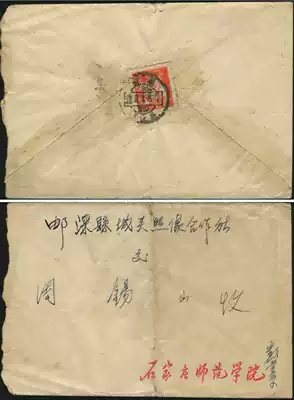 邮深县城关照像合作社
交
周锡山收
石家庄师范学院